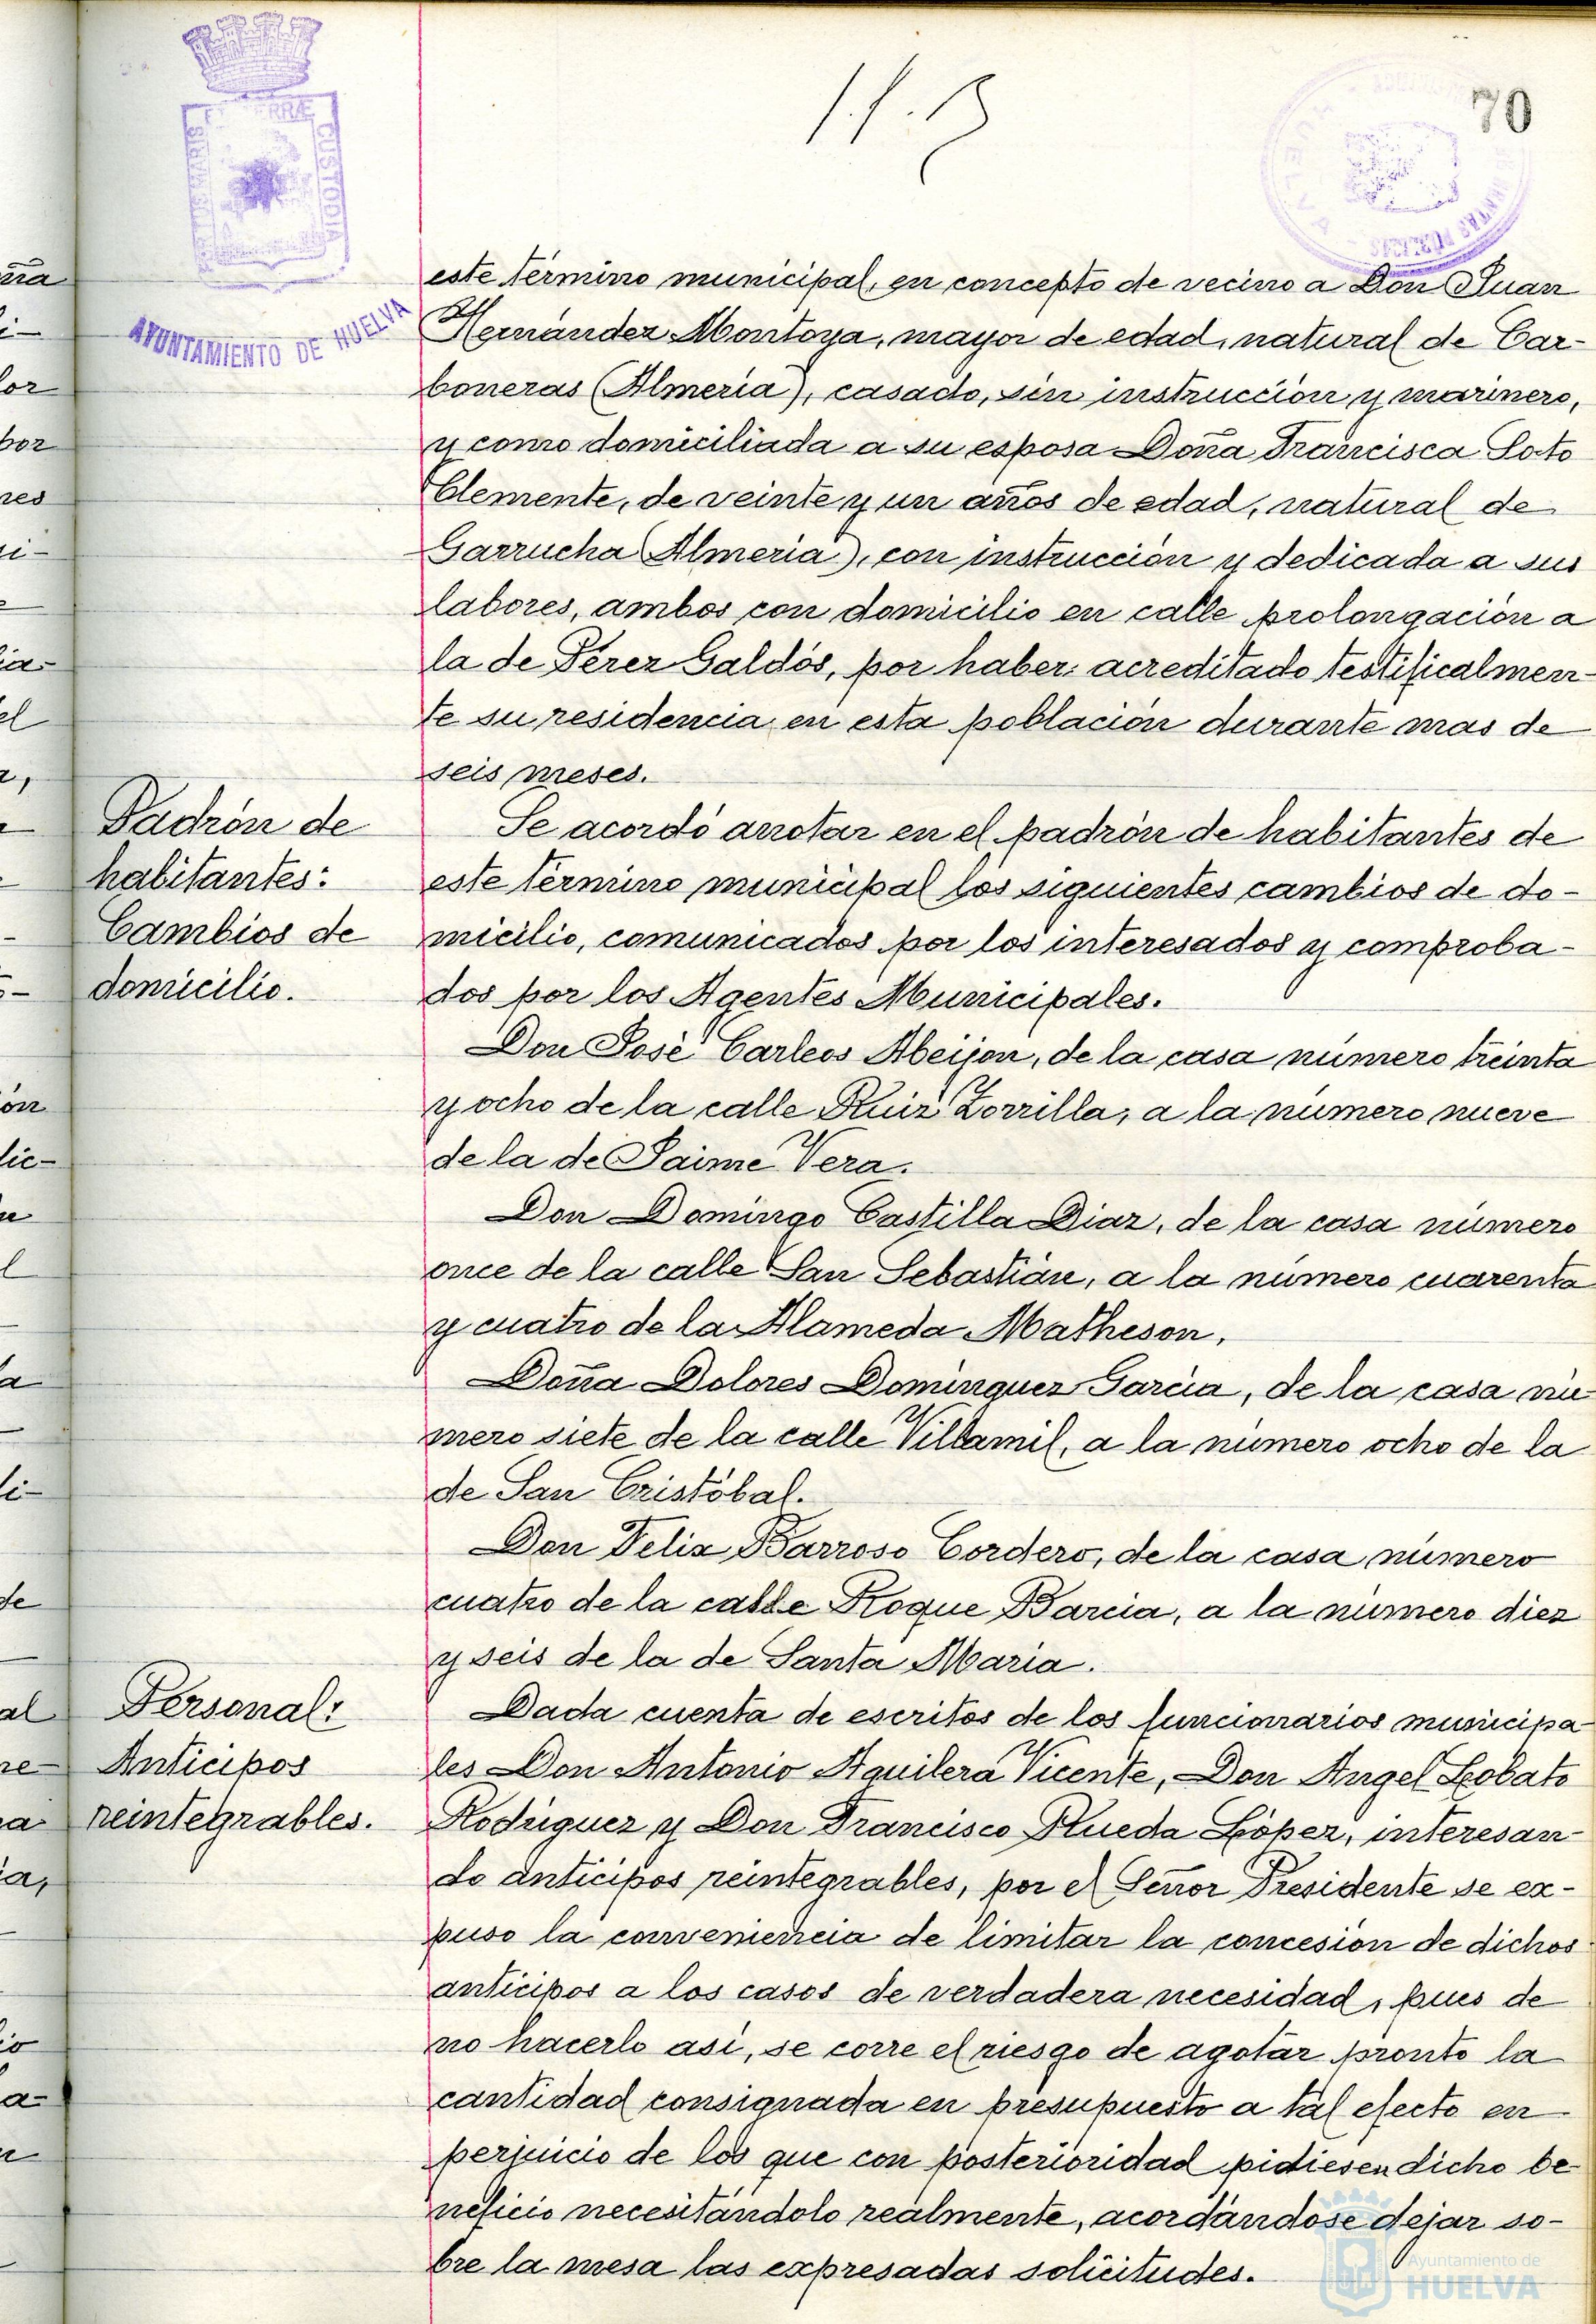 70
PORTUS MARIS ET TERRÆ CUSTODIA
AYUNTAMIENTO DE HUELVA
este término municipal, en concepto de vecino a Don Juan
Hernández Montoya, mayor de edad, natural de Car-
boneras (Almería), casado, sin instrucción y marinero,
y como domiciliada a su esposa Doña Francisca Soto
Clemente, de veinte y un años de edad, natural de
Garrucha (Almería), con instrucción y dedicada a sus
labores, ambos con domicilio en calle prolongación a
la de Pérez Galdós, por haber acreditado testificalmen-
te su residencia en esta población durante mas de
seis meses.
Padrón de
habitantes:
Cambios de
domicilio.
Se acordó anotar en el padrón de habitantes de
este término municipal los siguientes cambios de do-
micilio, comunicados por los interesados y comproba-
dos por los Agentes Municipales.
Don José Carleos Abeijon, de la casa número treinta
y ocho de la calle Ruiz Zorrilla, a la número nueve
de la de Jaime Vera.
Don Domingo Castilla Diaz, de la casa número
once de la calle San Sebastián, a la número cuarenta
y cuatro de la Alameda Matheson.
Doña Dolores Dominguez Garcia, de la casa nú
mero siete de la calle Villamil, a la número ocho de la
de San Cristóbal.
Don Felix Barroso Cordero, de la casa número
cuatro de la calle Roque Barcia, a la número diez
y seis de la de Santa Maria.
Personal:
Anticipos
reintegrables.
Dada cuenta de escritos de los funcionarios municipa
les Don Antonio Aguilera Vicente, Don Angel Lobato
Rodriguez y Don Francisco Rueda López, interesan-
do anticipos reintegrables, por el Señor Presidente se ex-
puso la conveniencia de limitar la concesión de dichos
anticipos a los casos de verdadera necesidad, pues de
no hacerlo así, se corre el riesgo de agotar pronto la
cantidad consignada en presupuesto a tal efecto en
perjuicio de los que con posterioridad pidiesen dicho be-
neficio necesitándolo realmente, acordándose dejar so-
bre la mesa las expresadas solicitudes.
Ayuntamiento de
HUELVA